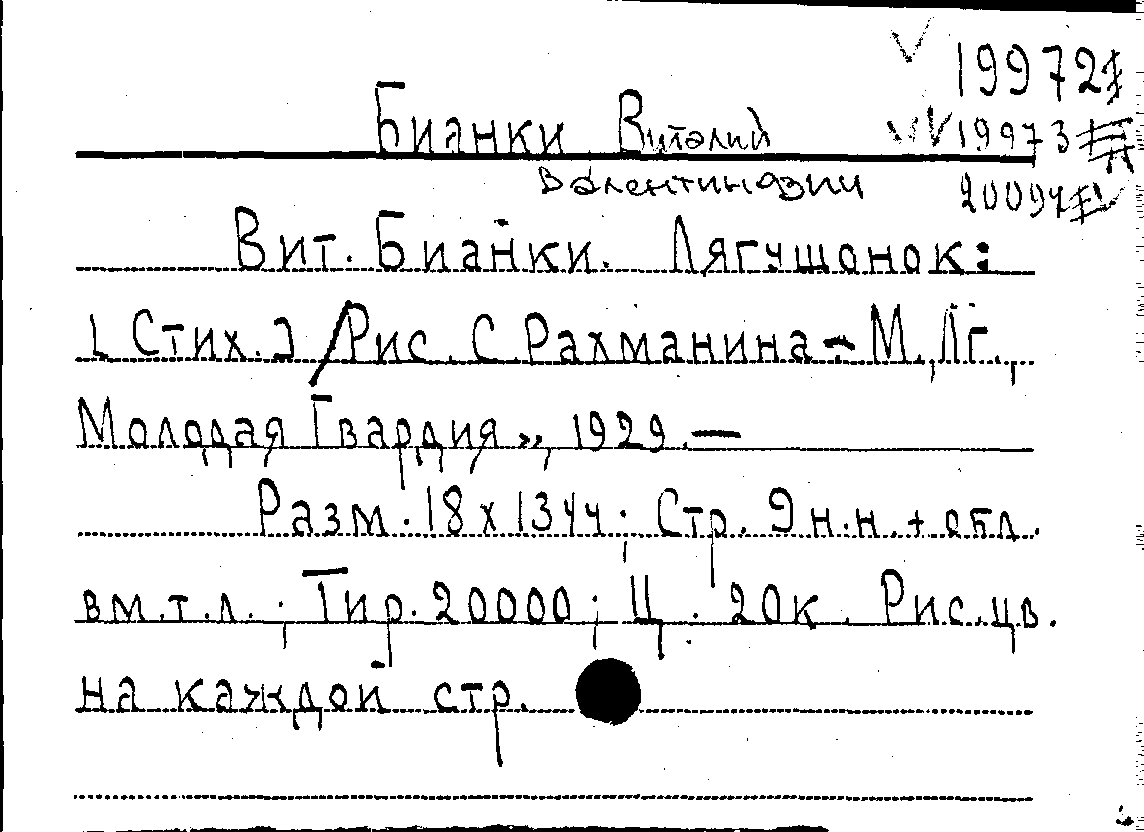 199721
Бианки Виталий
19973
Валентинович
20094
Вит. Бианки. Лягушонок:
[Стих.] / Рис. С. Рахманина – М., Лг.,
Молодая Гвардия», 1929. —
Разм. 18 x 13 ¼ ; Стр. 9 н.н. + обл.
вм. т. л. ; Тир. 20000 ; Ц. 20 к. Рис. цв.
на каждой стр.